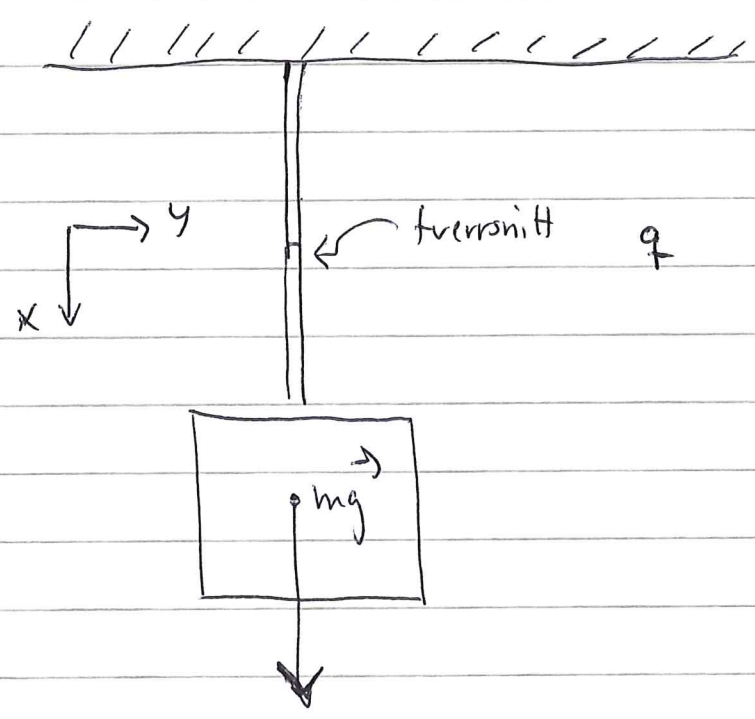 y
tverrsnitt
q
x
mg